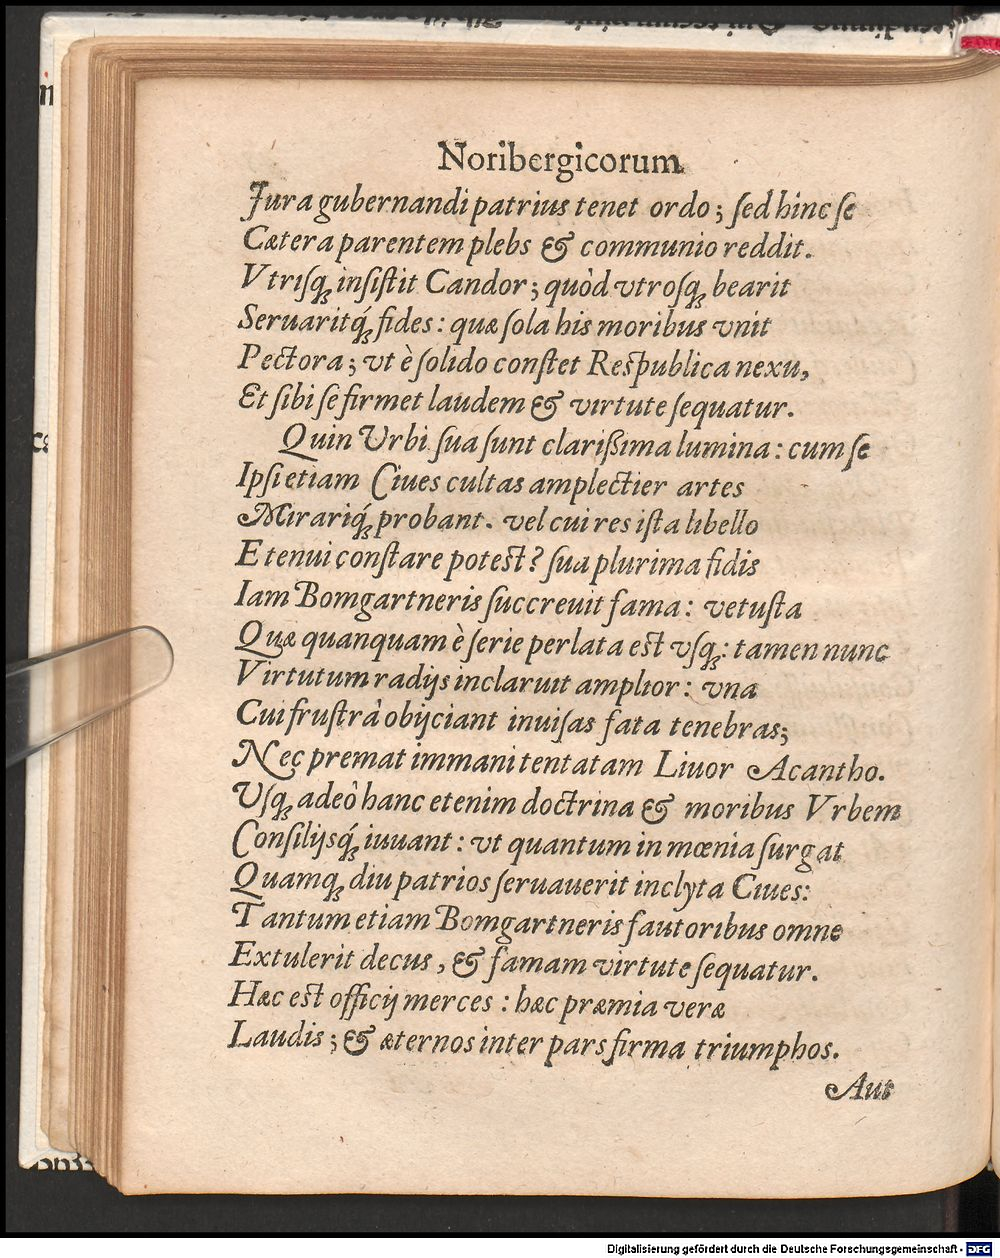 Noribergicorum
Jura gubernandi patrius tenet ordo; ſed hinc ſe
Cætera parentem plebs & communio reddit.
Vtriſq; inſiſtit Candor; quòd vtroſq; bearit
Seruaritq́; fides: quæ ſola his moribus vnit
Pectora; vt è ſolido conſtet Reſpublica nexu,
Et ſibi ſe firmet laudem & virtute ſequatur.
Quin Urbi ſua ſunt clarißima lumina: cum ſe
Ipſi etiam Ciues cultas amplectier artes
Mirariq́; probant. vel cui res iſta libello
E tenui conſtare poteſt? ſua plurima fidis
Iam Bomgartneris ſuccreuit fama: vetuſta
Quæ quanquam è ſerie perlata eſt vſq;: tamen nunc
Virtutum radijs inclaruit amplior: vna
Cui fruſtrà obijciant inuiſas fata tenebras;
Nec premat immani tentatam Liuor Acantho.
Uſq; adeò hanc etenim doctrina & moribus Vrbem
Conſilijsq́; iuuant: vt quantum in mœnia ſurgat
Quamq; diu patrios ſeruauerit inclyta Ciues:
Tantum etiam Bomgartneris fautoribus omne
Extulerit decus, & famam virtute ſequatur.
Hæc eſt officij merces: hæc præmia veræ
Laudis; & æternos inter pars firma triumphos.
Aut
Digitalisierung gefördert durch die Deutsche Forschungsgemeinschaft - DFG